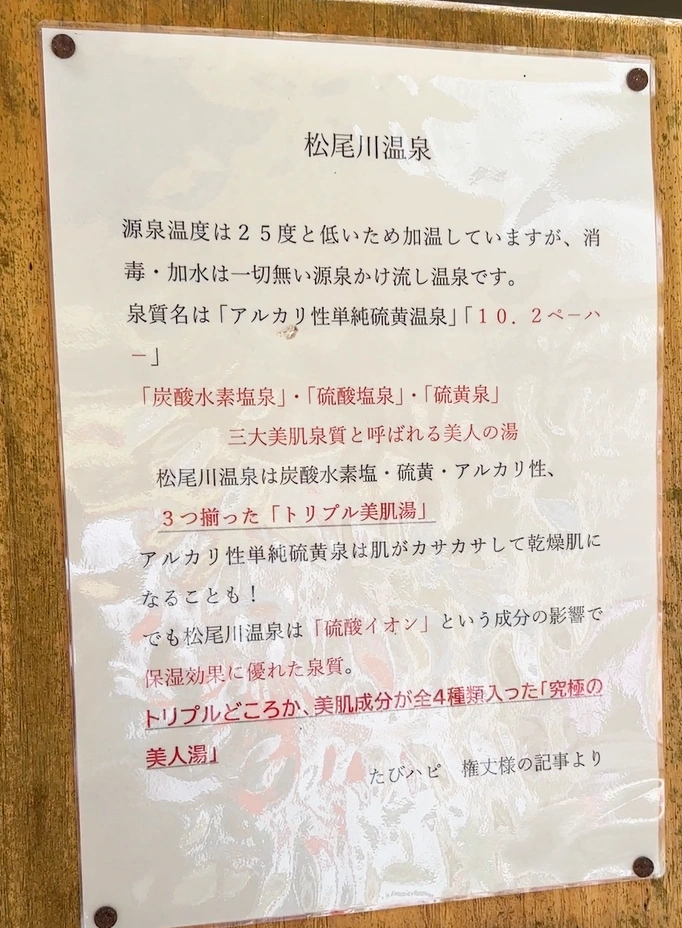 松尾川温泉
源泉温度は２５度と低いため加温していますが、消
毒・加水は一切無い源泉かけ流し温泉です。
泉質名は「アルカリ性単純硫黄温泉」「１０．２ペーハ
ー」
「炭酸水素塩泉」・「硫酸塩泉」・「硫黄泉」
三大美肌泉質と呼ばれる美人の湯
松尾川温泉は炭酸水素塩・硫黄・アルカリ性、
３つ揃った「トリプル美肌湯」
アルカリ性単純硫黄泉は肌がカサカサして乾燥肌に
なることも！
でも松尾川温泉は「硫酸イオン」という成分の影響で
保湿効果に優れた泉質。
トリプルどころか、美肌成分が全4種類入った「究極の
美人湯」
たびハピ　権丈様の記事より